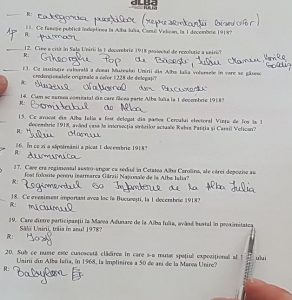 ALBA IULIA
R: categoria preoților (reprezentanții bisericilor)
11. Ce funcție publică îndeplinea la Alba Iulia, Camil Velican, la 1 decembrie 1918?
1p R: primar
12. Cine a citit în Sala Unirii la 1 decembrie 1918 proiectul de rezoluție a unirii?
R: Gheorghe Pop de Băsești, Iuliu Maniu, Vasile Goldiș
13. Ce instituție culturală a donat Muzeului Unirii din Alba Iulia volumele în care se găsesc
credenționalele originale a celor 1228 de delegați?
R: Muzeul Național din București
14. Cum se numea comitatul din care făcea parte Alba Iulia la 1 decembrie 1918?
R: Comitatul de Alba
15. Ce avocat din Alba Iulia a fost delegat din partea Cercului electoral Vințu de Jos la 1
decembrie 1918, având casa la intersecția străzilor actuale Rubin Patiția și Camil Velican?
R: Iuliu Maniu
16. În ce zi a săptămânii a picat 1 decembrie 1918?
R: duminica
17. Care era regimentul austro-ungar cu sediul în Cetatea Alba Carolina, ale cărei depozite au
fost folosite pentru înarmarea Gărzii Naționale de la Alba Iulia?
R: Regimentul 50 Infanterie de la Alba Iulia
18. Ce eveniment important avea loc la București, la 1 decembrie 1918?
R: niciunul
19. Care dintre participanții la Marea Adunare de la Alba Iulia, având bustul în proximitatea
Sălii Unirii, trăia în anul 1978?
R: Iosif
20. Sub ce nume este cunoscută clădirea în care s-a mutat spațiul expozițional al
Unirii din Alba Iulia, în 1968, la împlinirea a 50 de ani de la Marea Unire?
R: Babylon